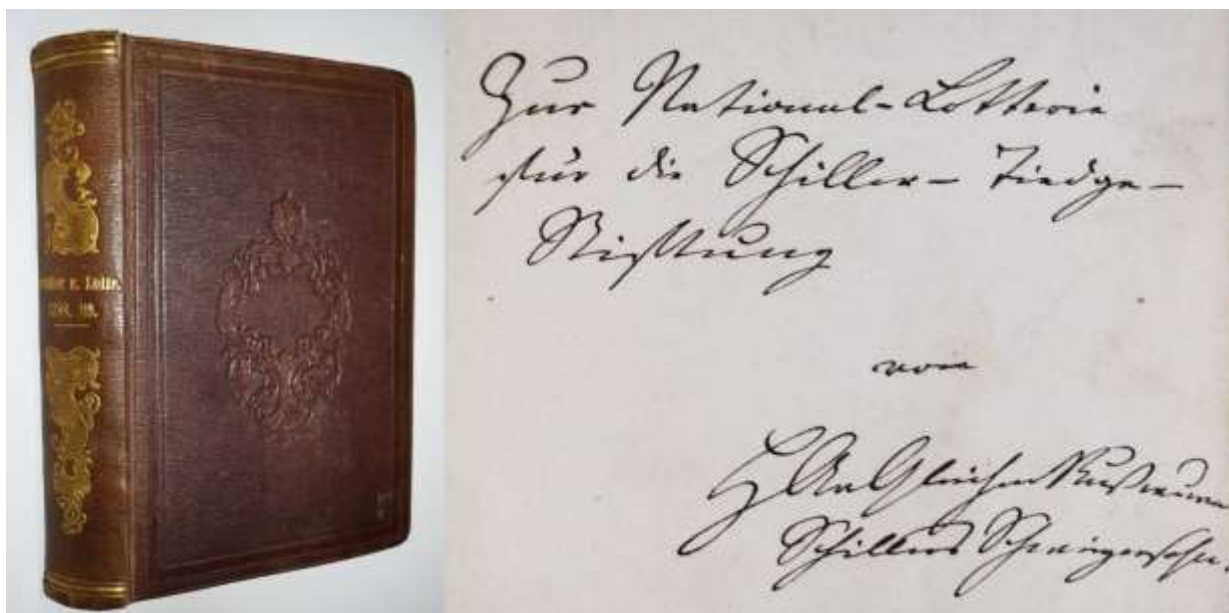 Schiller u. Lotte.
1788. 89.
Zur National-Lotterie
für die Schiller-Tiedge-
Stiftung
von
H Av Gleichen Rußwurm
Schillers Schwiegersohn.